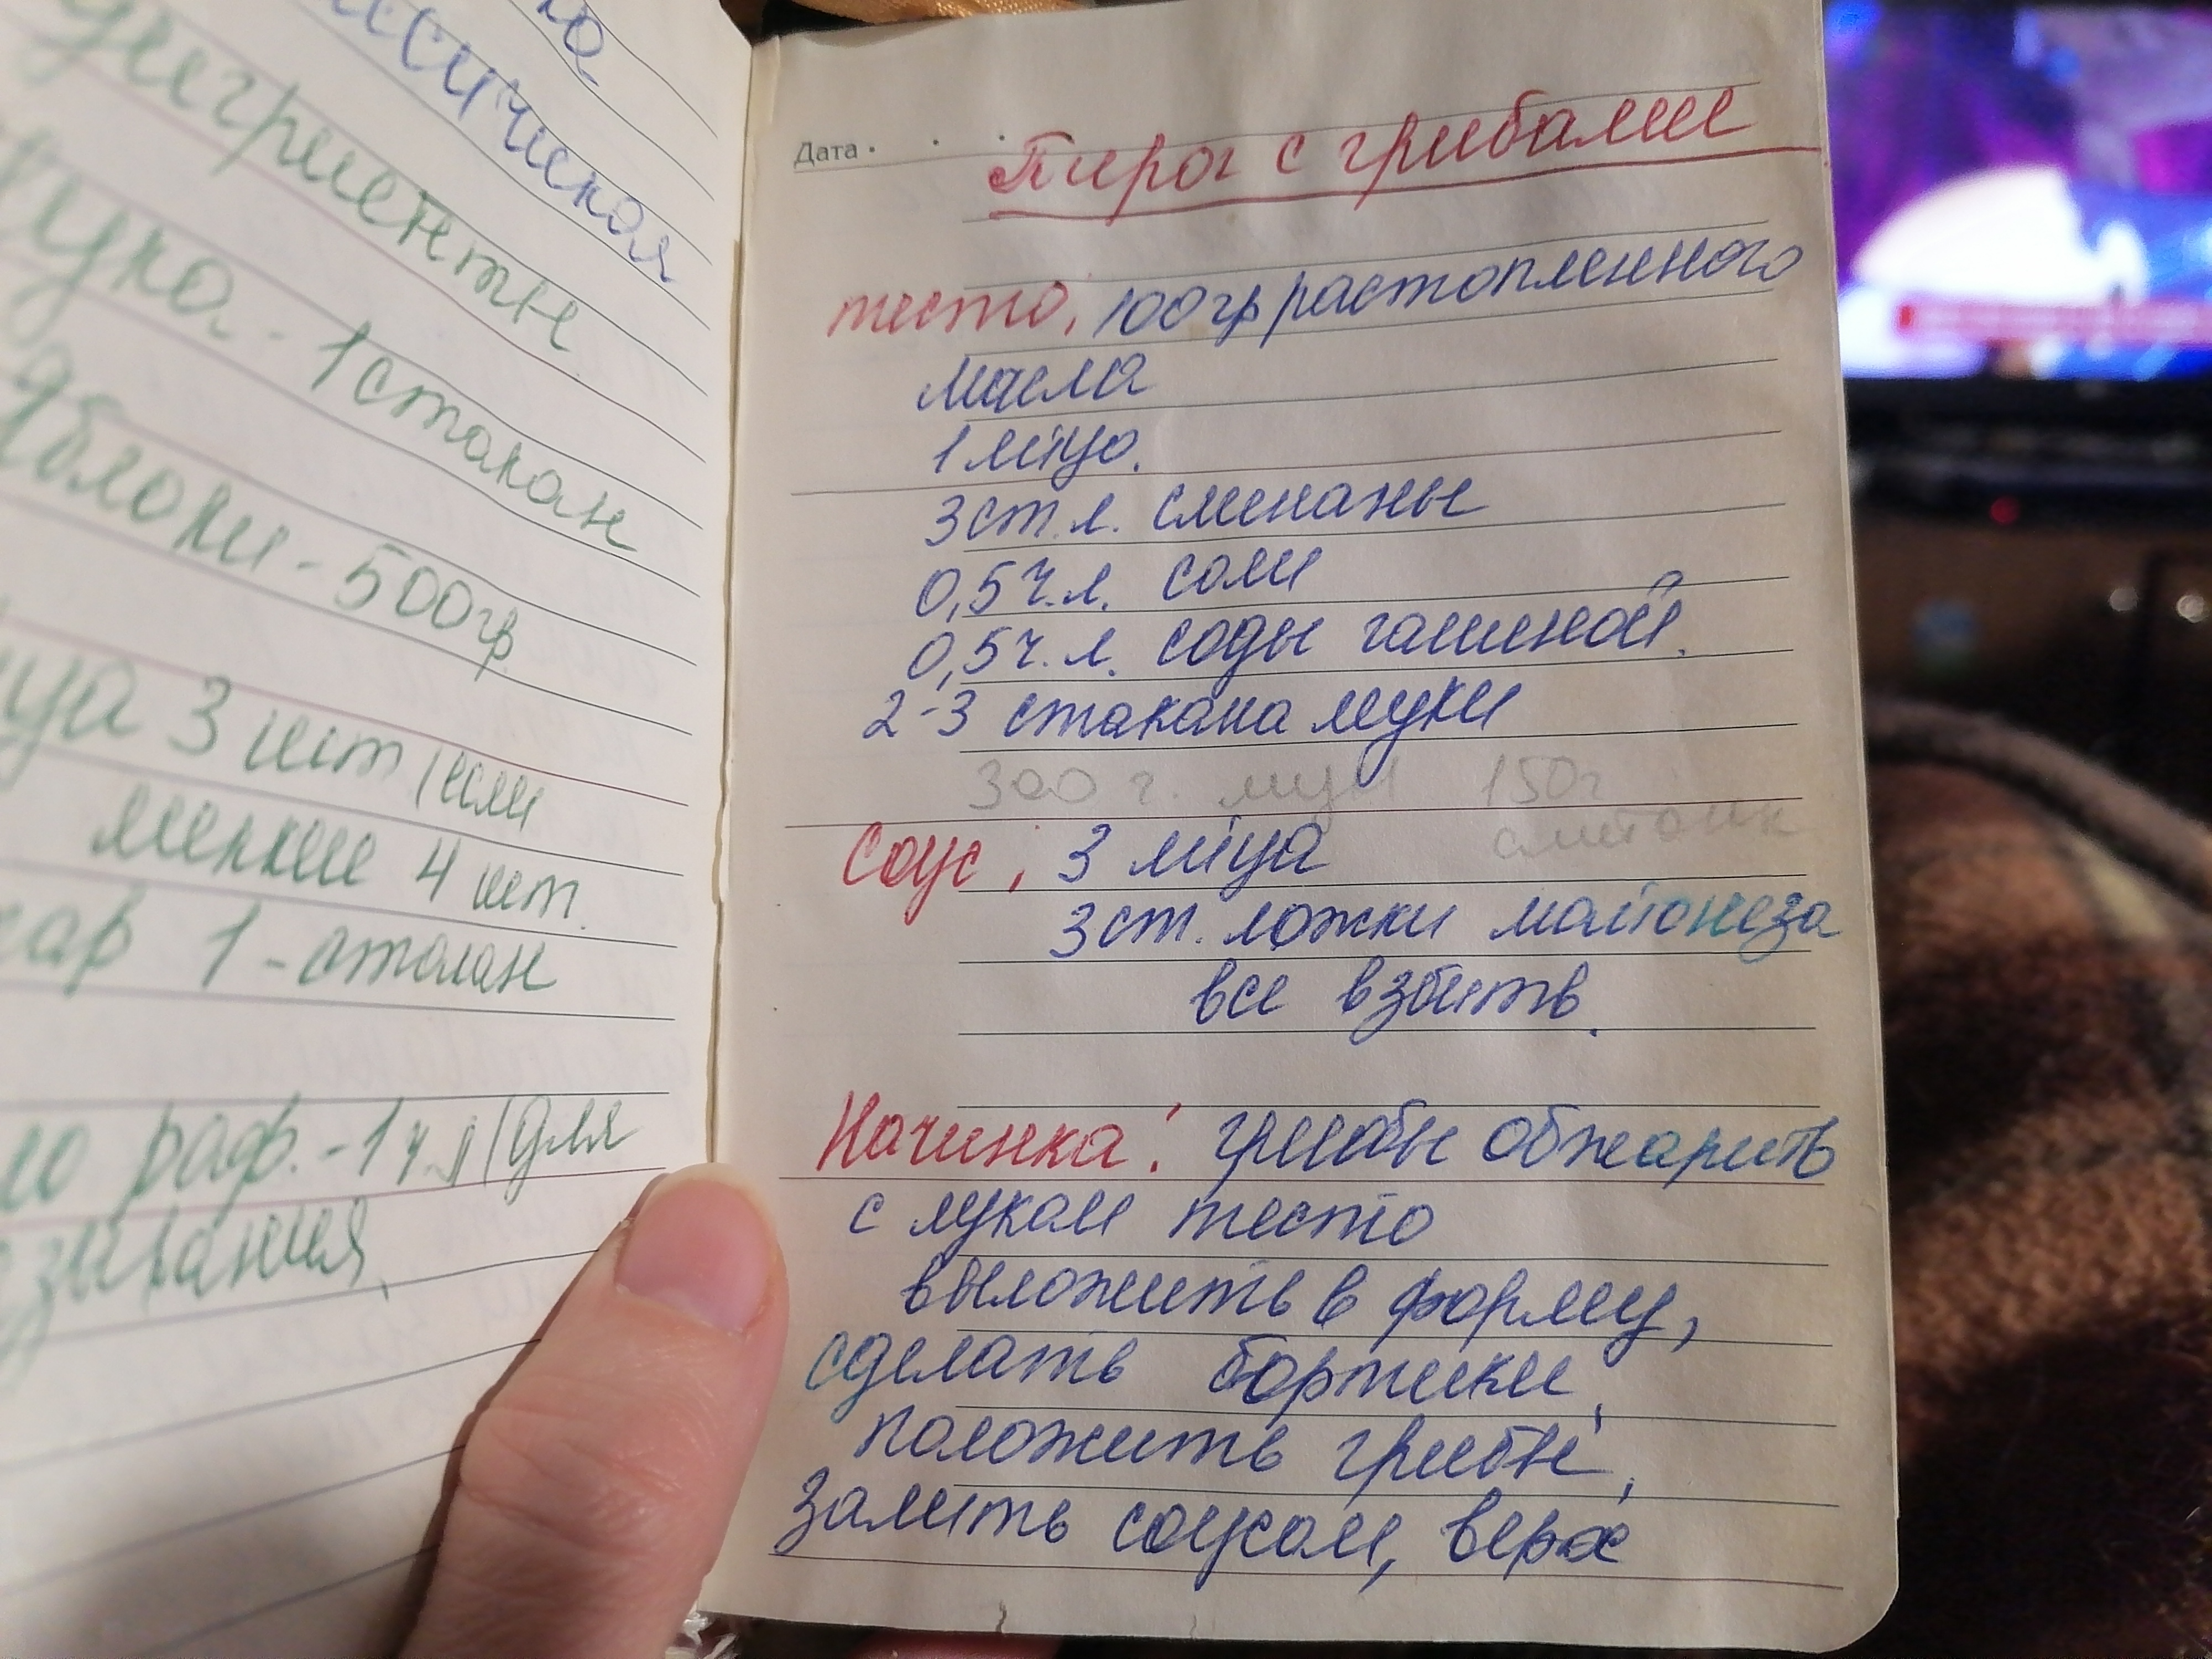 ю
ссическая
Ингредиенты
Мука - 1 стакан
Яблоки - 500гр
йца 3 шт (или
мелкие 4 шт.
хар 1 - стакан
ло раф. - 1 ч.л (для
зывания
Дата
Пирог с грибами
тесто, 100гр растопленного
масла
1 яйцо.
3 ст. л. сметаны
0,5 ч. л. соли
0,5 ч. л. соды гашеной.
2-3 стакана муки
300 г. муки 150г
сметанк
Соус, 3 яйца
3 ст. ложки майонеза
все взбить.
Начинка: грибы обжарить
с луком тесто
выложить в форму,
сделать бортики,
положить грибы,
залить соусом, верх